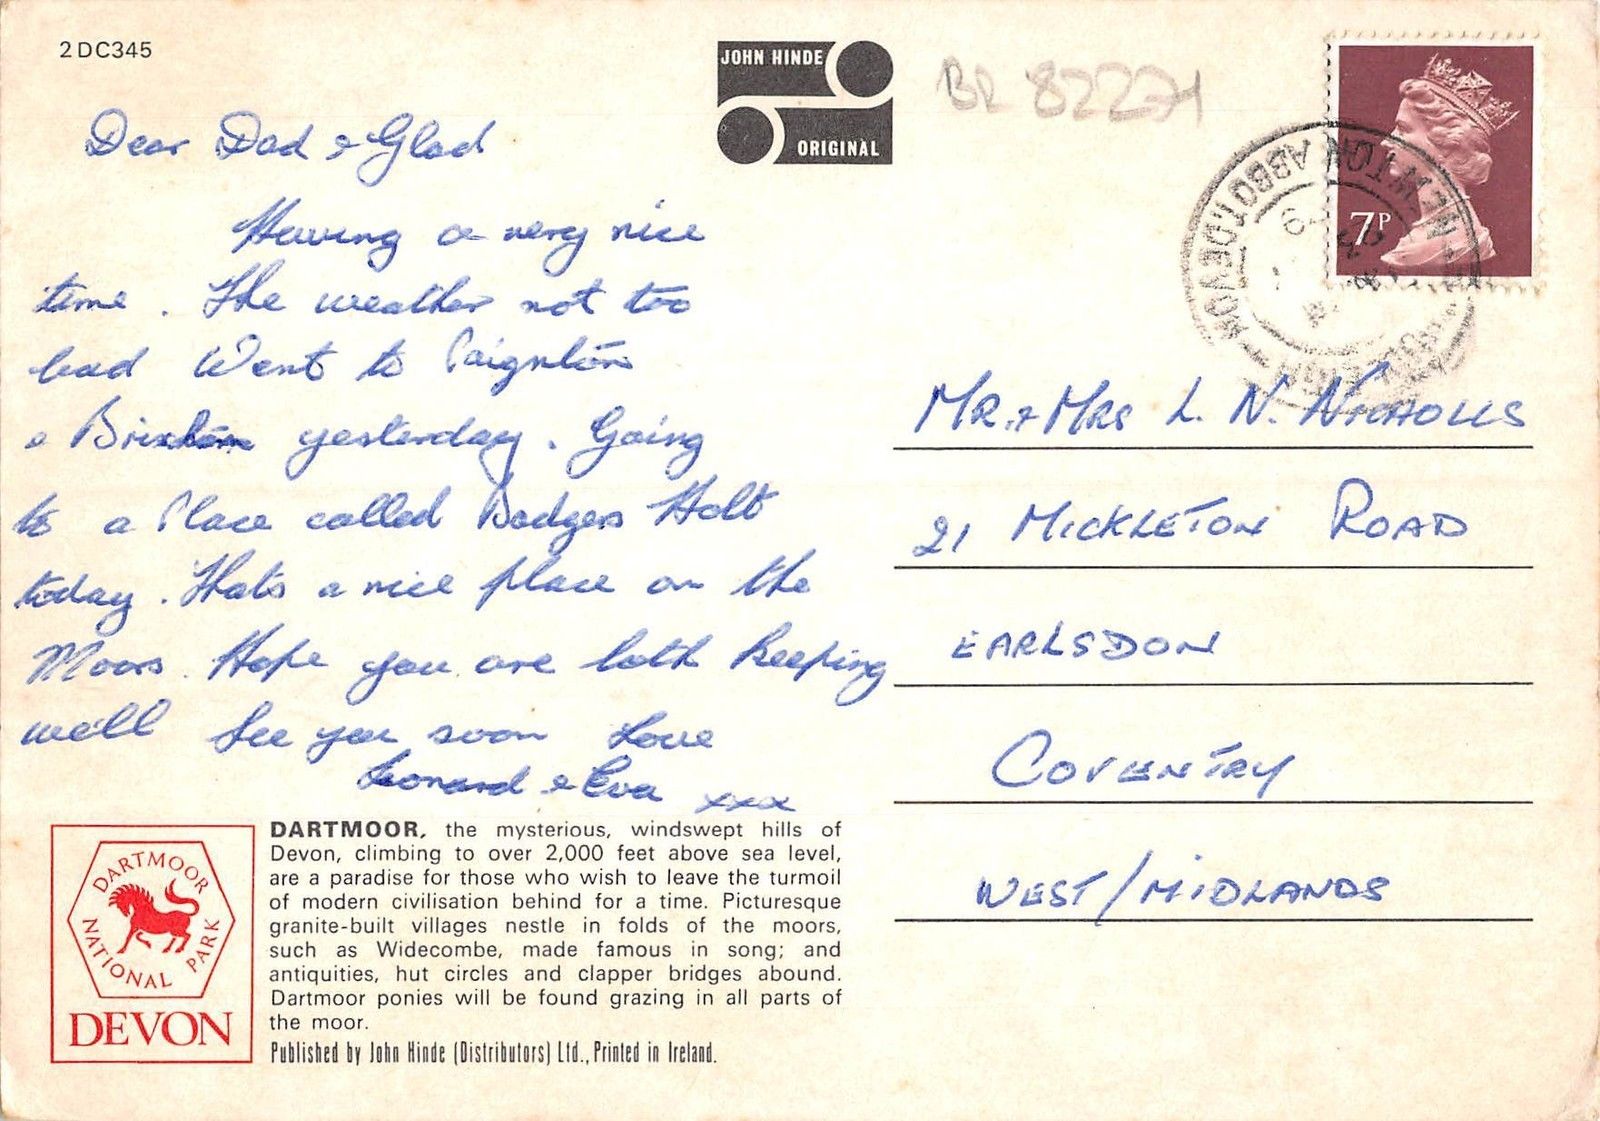 2DC345
JOHN HINDE
ORIGINAL
BR 82271
7P
NEWTON ABBOT DEVON
Dear Dad & Glad
Having a very nice
time. The weather not too
bad Went to Paignton
& Brixham yesterday. Going
to a Place called Badgers Holt
today. Thats a nice place on the
Moors. Hope you are both keeping
well See you soon Love
Leonard & Eva xxx
MR. & MRS L. N. NICHOLLS
21 MICKLETON ROAD
EARLSDON
COVENTRY
WEST/MIDLANDS
DARTMOOR
NATIONAL PARK
DEVON
DARTMOOR, the mysterious, windswept hills of
Devon, climbing to over 2,000 feet above sea level,
are a paradise for those who wish to leave the turmoil
of modern civilisation behind for a time. Picturesque
granite-built villages nestle in folds of the moors,
such as Widecombe, made famous in song; and
antiquities, hut circles and clapper bridges abound.
Dartmoor ponies will be found grazing in all parts of
the moor.
Published by John Hinde (Distributors) Ltd., Printed in Ireland.